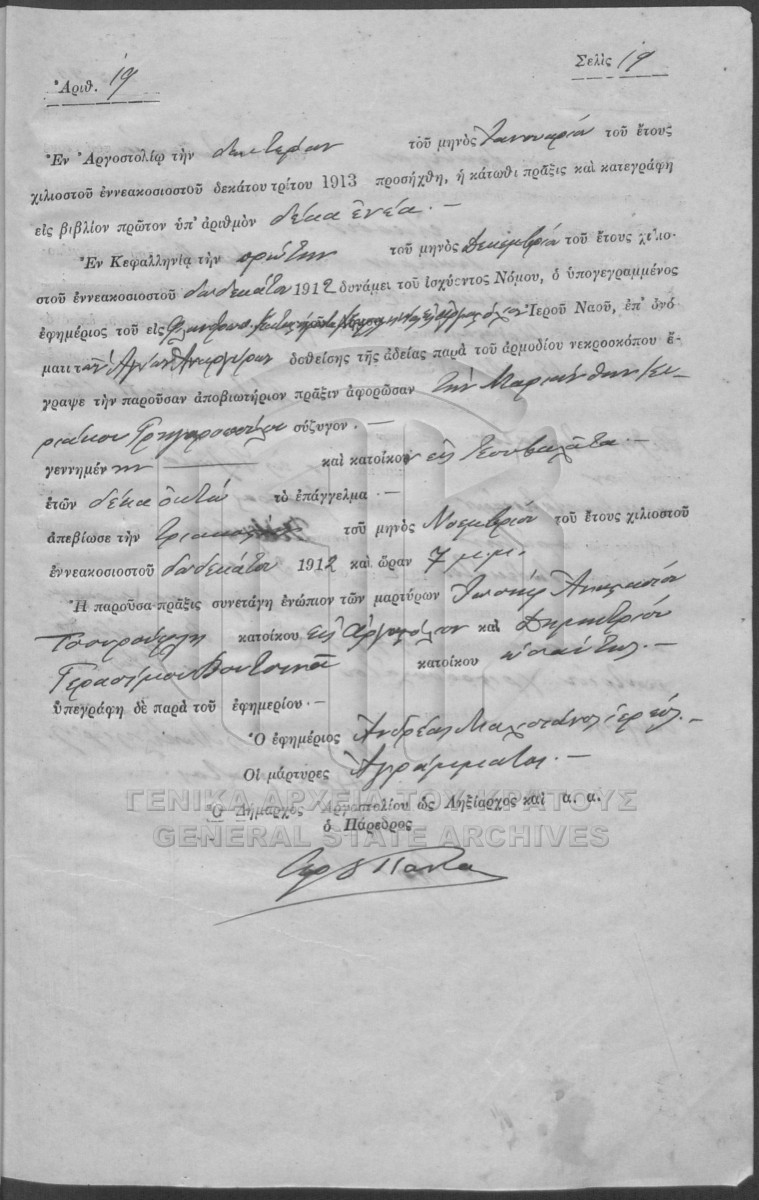 Ἀριθ. 19
Σελὶς 19
Ἐν Ἀργοστολίῳ τὴν δευτέραν τοῦ μηνὸς Ἰανουαρίου τοῦ ἔτους
χιλιοστοῦ ἐννεακοσιοστοῦ δεκάτου τρίτου 1913 προσήχθη, ἡ κάτωθι πρᾶξις καὶ κατεγράφη
εἰς βιβλίον πρῶτον ὑπ' ἀριθμὸν δέκα ἐνέα.—
Ἐν Κεφαλληνίᾳ τὴν πρώτην τοῦ μηνὸς Δεκεμβρίου τοῦ ἔτους χιλιο-
στοῦ ἐννεακοσιοστοῦ δωδεκάτου 1912 δυνάμει τοῦ ἰσχύοντος Νόμου, ὁ ὑπογεγραμμένος
ἐφημέριος τοῦ εἰς Ἱεροῦ Ναοῦ, ἐπ' ὀνό
ματι τῶν Ἁγίων Ἀναργύρων δοθείσης τῆς ἀδείας παρὰ τοῦ ἁρμοδίου νεκροσκόπου ἔ-
γραψε τὴν παροῦσαν ἀποβιωτήριον πρᾶξιν ἀφορῶσαν τὴν Μαριάνθην Κυ-
ριάκου σύζυγον.—
γεννημένην καὶ κατοίκου εἰς
ἐτῶν δέκα ὀκτώ τὸ ἐπάγγελμα.—
ἀπεβίωσε τὴν τοῦ μηνὸς Νοεμβρίου τοῦ ἔτους χιλιοστοῦ
ἐννεακοσιοστοῦ δωδεκάτου 1912 καὶ ὥραν 7 μ.μ.
Ἡ παροῦσα πρᾶξις συνετάγη ἐνώπιον τῶν μαρτύρων Ἰωσήφ
κατοίκου εἰς Ἀργοστόλιον καὶ Δημητρίου
Γερασίμου Βουτσινᾶ κατοίκου ὡσαύτως.—
ὑπεγράφη δὲ παρὰ τοῦ ἐφημερίου.—
Ὁ ἐφημέριος Ἀνδρέας ἱερεύς.—
Οἱ μάρτυρες Ἀγράμματοι.—
ΓΕΝΙΚΑ ΑΡΧΕΙΑ ΤΟΥ ΚΡΑΤΟΥΣ
Ὁ Δήμαρχος Ἀργοστολίου ὡς Ληξίαρχος καὶ α. α.
ὁ Πάρεδρος
GENERAL STATE ARCHIVES